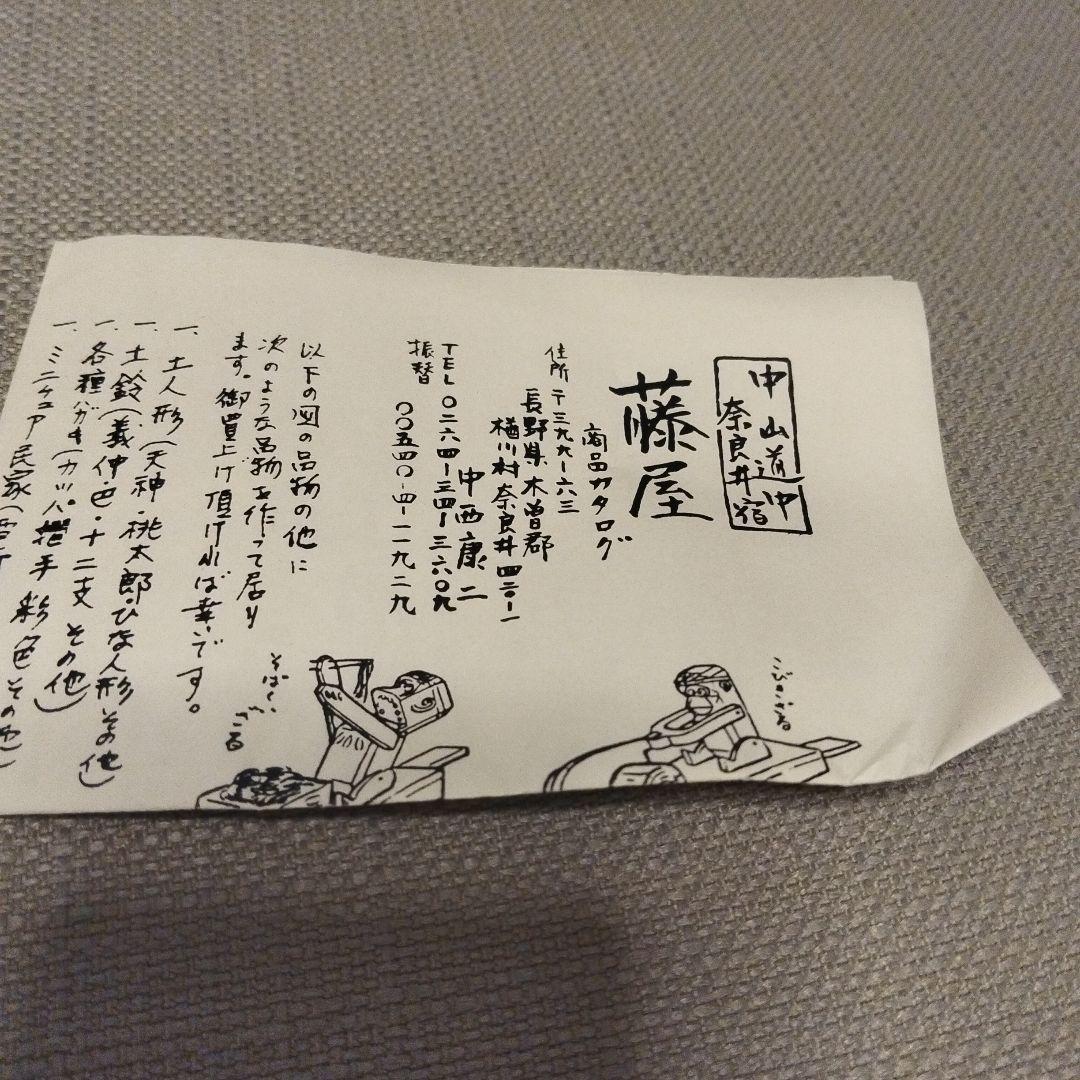 中山道中
奈良井宿
藤屋
商品カタログ
住所 〒三九九-六三
長野県木曽郡
楢川村奈良井四二〇-一
中西康二
TEL〇二六四-三四-三六〇九
振替 〇〇五四〇-四-一一九二九
以下の図の品物の他に
次のような品物を作って居り
ます。御買上げ頂ければ幸いです。
一、土人形(天神・桃太郎・ひな人形その他)
一、土鈴(義仲・巴・十二支 その他)
一、各種ハガキ(カッパ摺手彩色その他)
一、ミニチュア民家(
こびきざる
そばくいざる